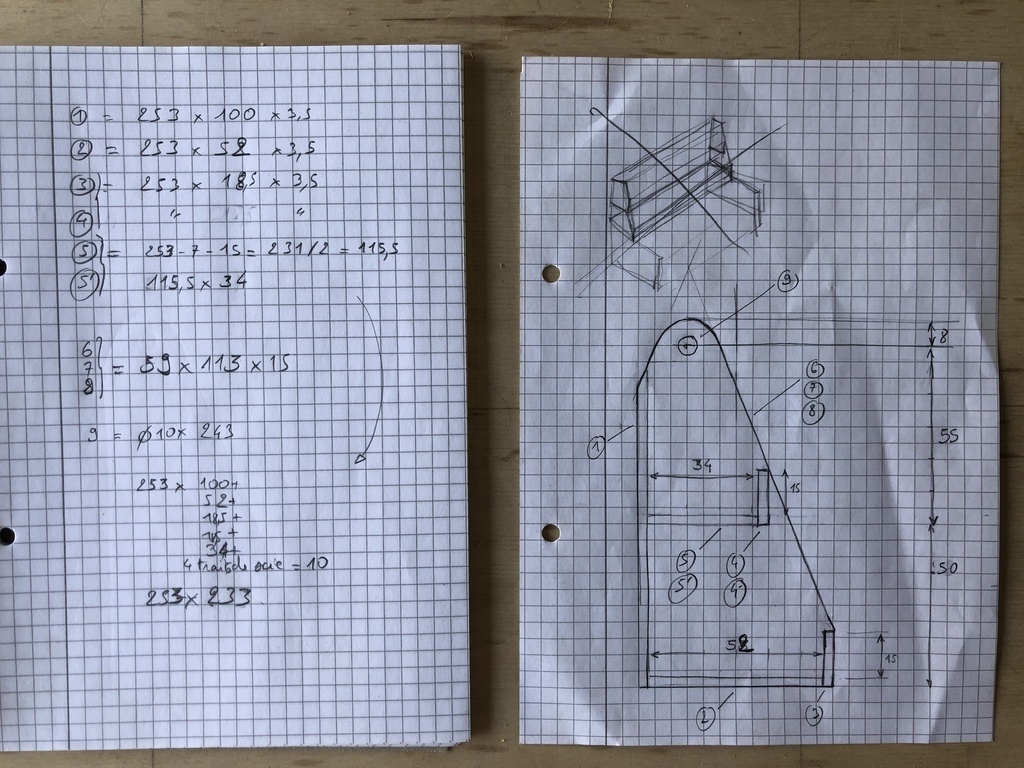 ① = 253 × 100 × 3,5
② = 253 × 52 × 3,5
③ = 253 × 18,5 × 3,5
④ " "
⑤ = 253 - 7 - 15 = 231/2 = 115,5
⑤' 115,5 × 34
6
7 = 59 × 113 × 15
8
9 = ø10 × 243
253 × 100+
52+
18,5+
34+
4 traits de scie = 10
253 × 233
⑨
8
⑥
⑦
⑧
55
①
34
15
⑤ ④
⑤' ④'
50
52
15
② ③